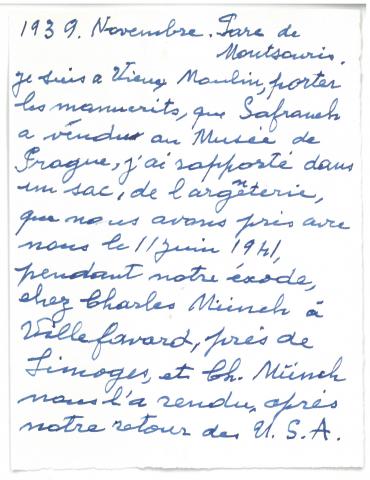 1939. Novembre. Parc de
Montsouris.
je suis a Vieux Moulin, porter
les manuscrits, que Safranek
a vendus au Musée de
Prague, j'ai rapporté dans
un sac, de l'argenterie,
que nous avons pris avec
nous le 11 juin 1941,
pendant notre éxode,
chez Charles Münch à
Villefavard, près de
Limoges, et Ch. Münch
nous l'a rendu, après
notre retour des U.S.A.